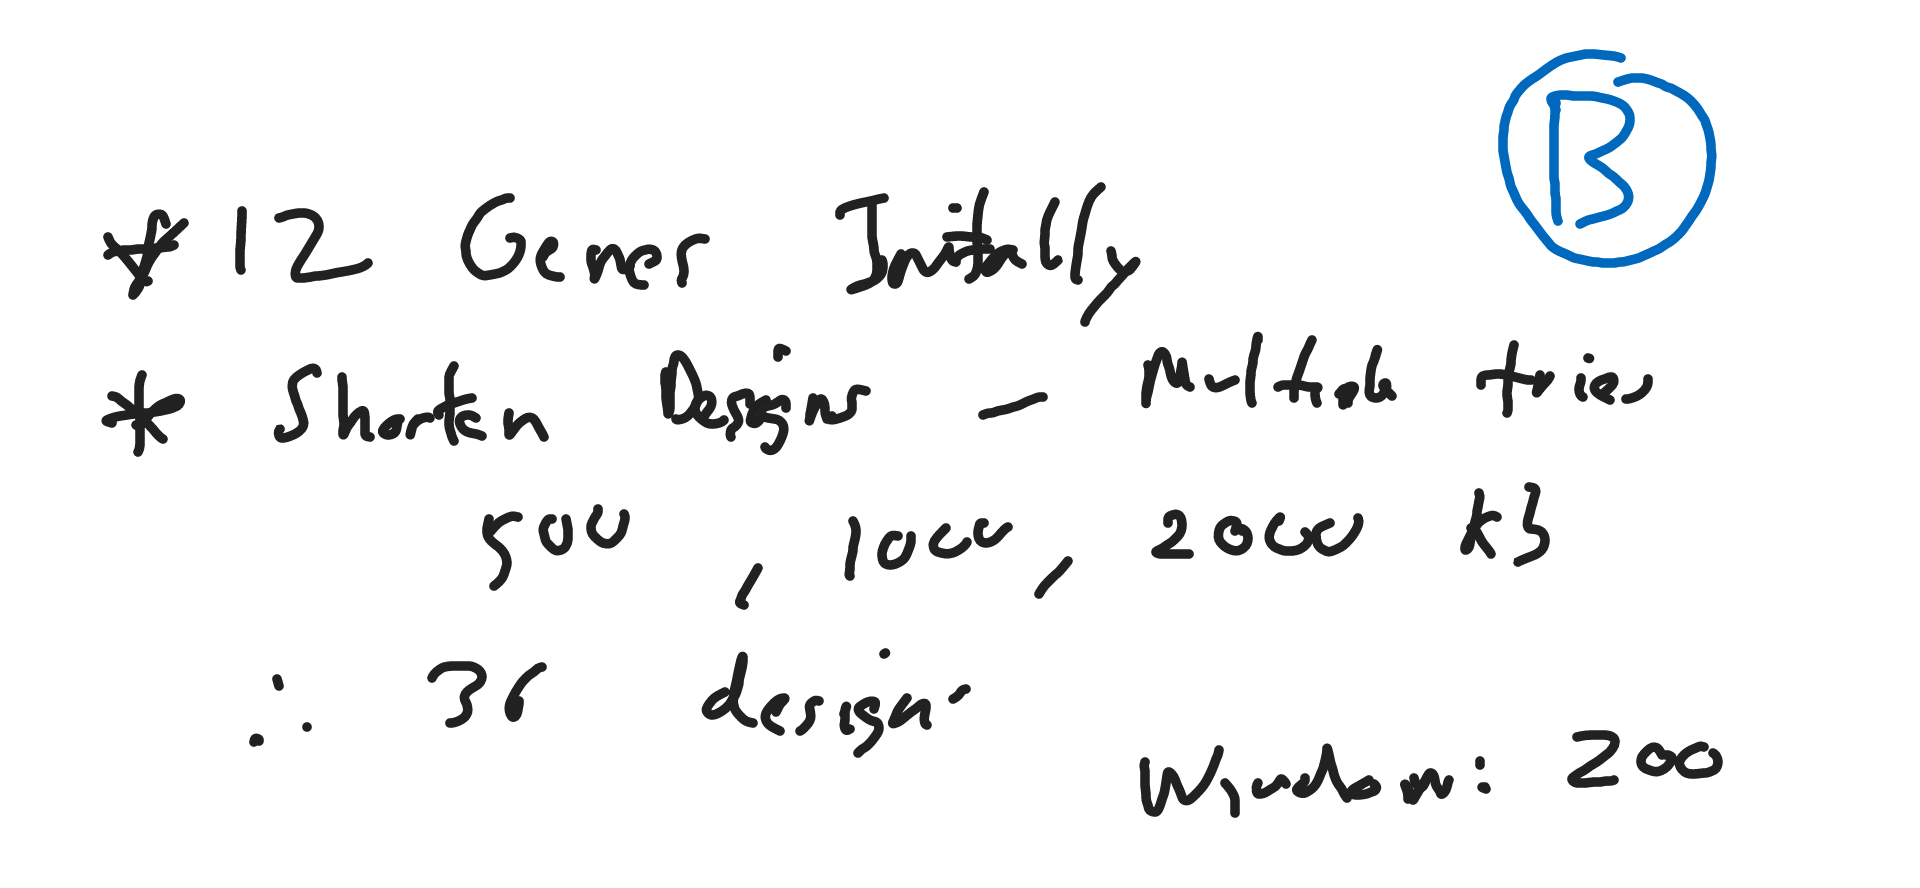 B
* 12 Genes Initally
* Shorten Designs - Multiple tries
500, 1000, 2000 kb
∴ 36 designs
Window: 200